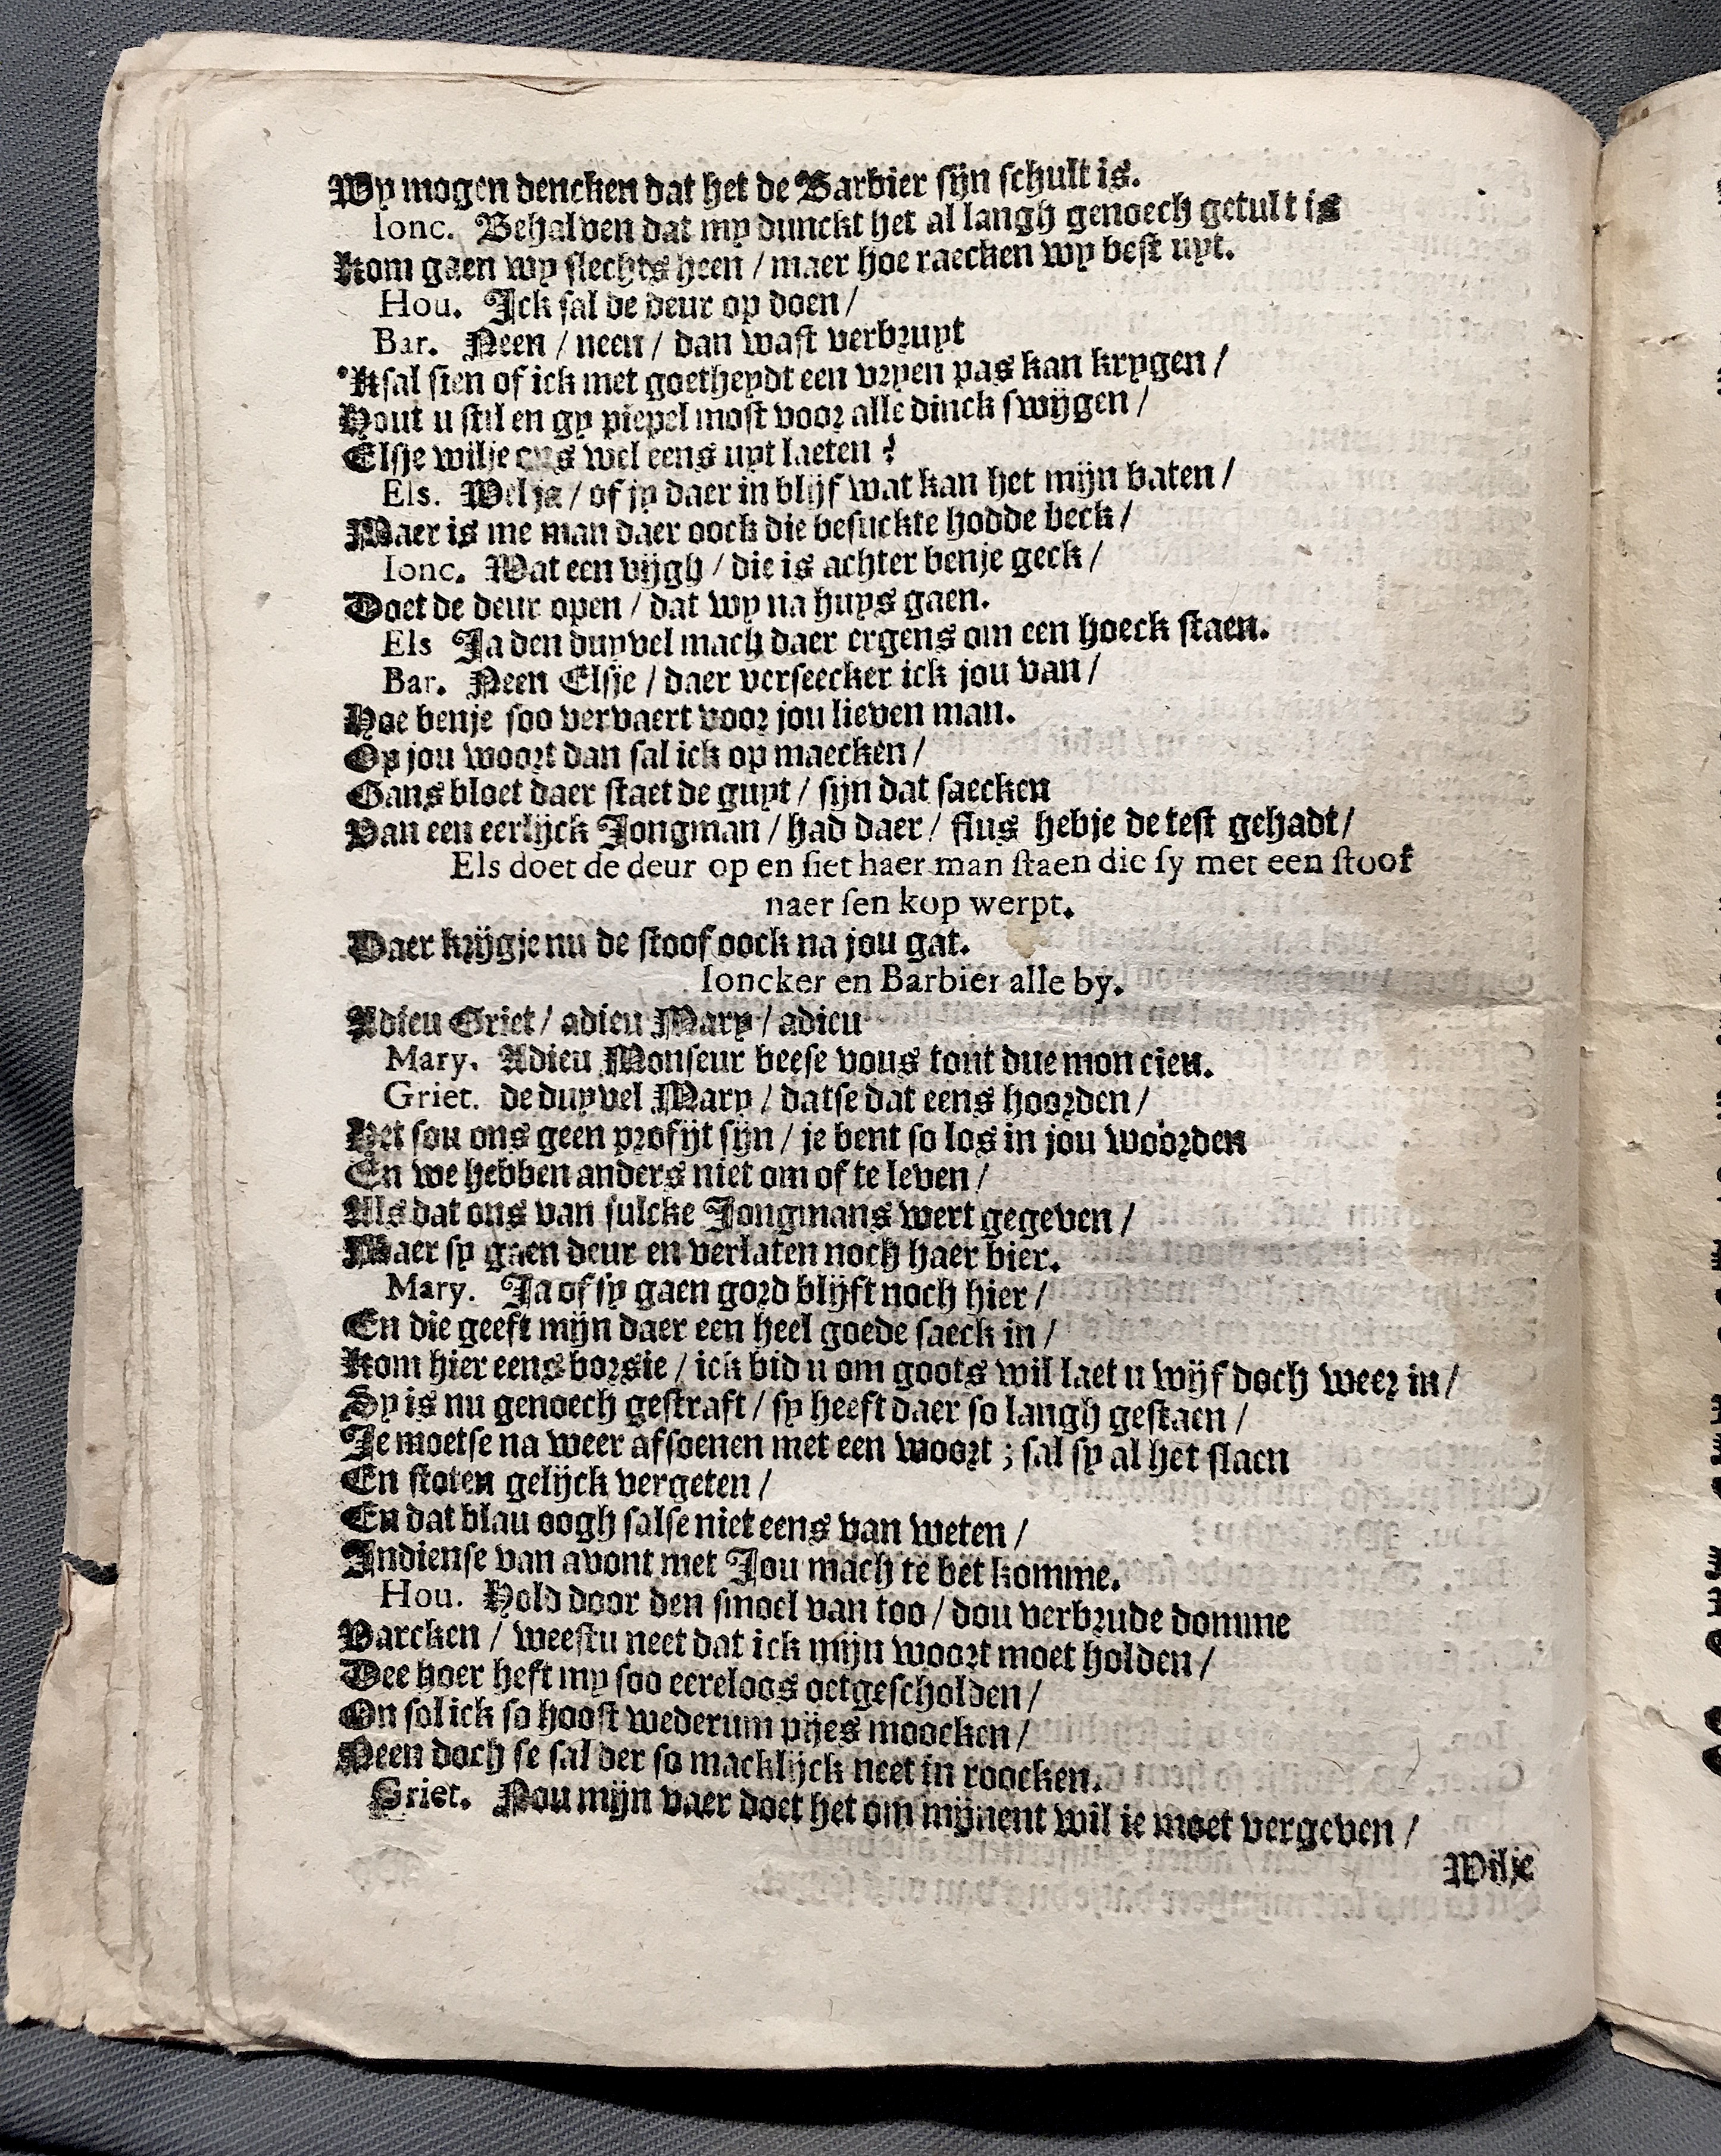 Wy mogen dencken dat het de Barbier sijn schult is.
Ionc. Behalven dat my dunckt het al langh genoech getult is
Kom gaen wy slechts heen / maer hoe raecken wy best uyt.
Hou. Ick sal de deur op doen /
Bar. Neen / neen / dan wast verbruyt
'Ksal sien of ick met goetheydt een vryen pas kan krygen /
Hout u stil en gy piepel most voor alle dinck swijgen /
Elsje wilje ons wel eens uyt laeten ?
Els. Wel ja / of jy daer in blijf wat kan het mijn baten /
Maer is me man daer oock die besuckte hodde beck /
Ionc. Wat een vijgh / die is achter benje geck /
Doet de deur open / dat wy na huys gaen.
Els Ja den duyvel mach daer ergens om een hoeck staen.
Bar. Neen Elsje / daer verseecker ick jou van /
Hoe benje soo vervaert voor jou lieven man.
Op jou woort dan sal ick op maecken /
Gans bloet daer staet de guyt / sijn dat saecken
Van een eerlijck Jongman / had daer / flus hebje de test gehadt /
Els doet de deur op en siet haer man staen die sy met een stoof
naer sen kop werpt.
Daer krijgje nu de stoof oock na jou gat.
Ioncker en Barbier alle by.
Adieu Griet / adieu Mary / adieu
Mary. Adieu Monseur beese vous tout due mon cieu.
Griet. de duyvel Mary / datse dat eens hoorden /
Het sou ons geen profijt sijn / je bent so los in jou woorden
En we hebben anders niet om of te leven /
Als dat ons van sulcke Jongmans wert gegeven /
Maer sy gaen deur en verlaten noch haer bier.
Mary. Ja of sy gaen gord blijft noch hier /
En die geeft mijn daer een heel goede saeck in /
Kom hier eens borsie / ick bid u om goots wil laet u wijf doch weer in /
Sy is nu genoech gestraft / sy heeft daer so langh gestaen /
Je moetse na weer afsoenen met een woort ; sal sy al het slaen
En stoten gelijck vergeten /
En dat blau oogh salse niet eens van weten /
Indiense van avont met Jou mach te bet komme.
Hou. Hold door den smoel van too / dou verbrude domme
Varcken / weestu neet dat ick mijn woort moet holden /
Dee hoer heft my soo eereloos oetgescholden /
On sol ick so hoost wederum pijes moocken /
Neen doch se sal der so macklijck neet in roocken.
Griet. Nou mijn vaer doet het om mijnent wil je moet vergeven /
Wilje